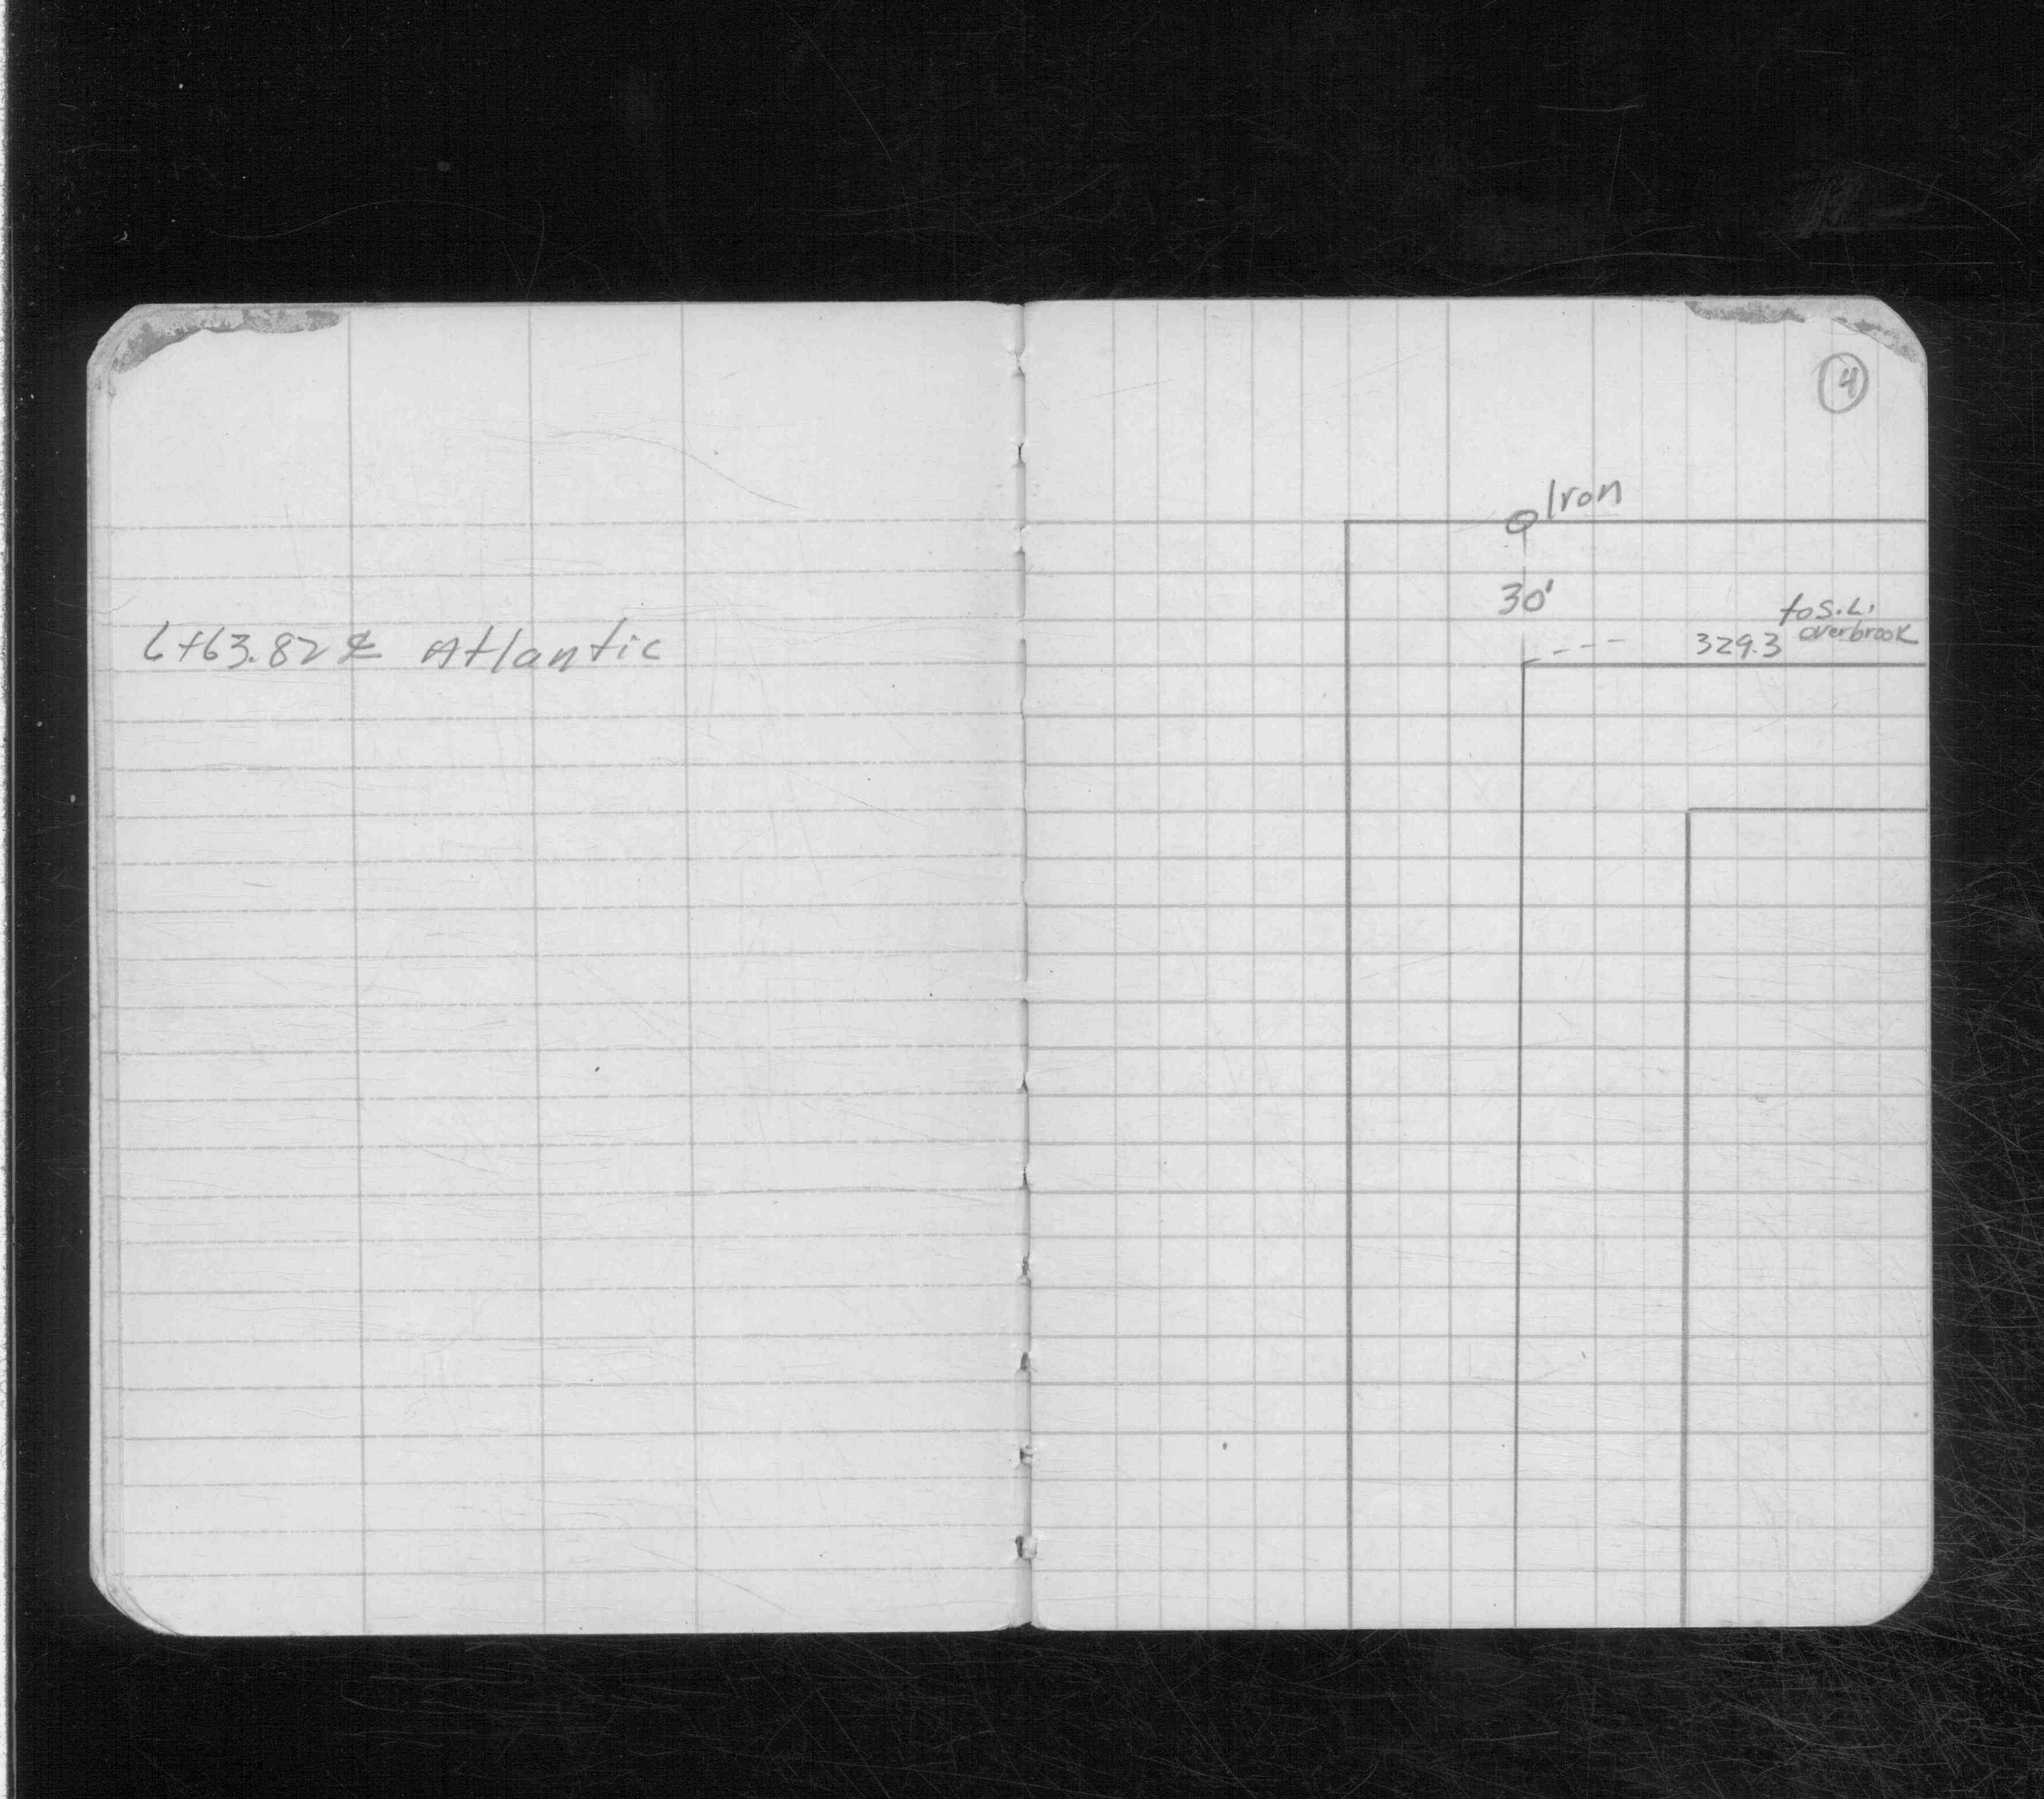 6+63.82 ℄ Atlantic
4
Iron
30'
to S.L.
329.3 overbrook